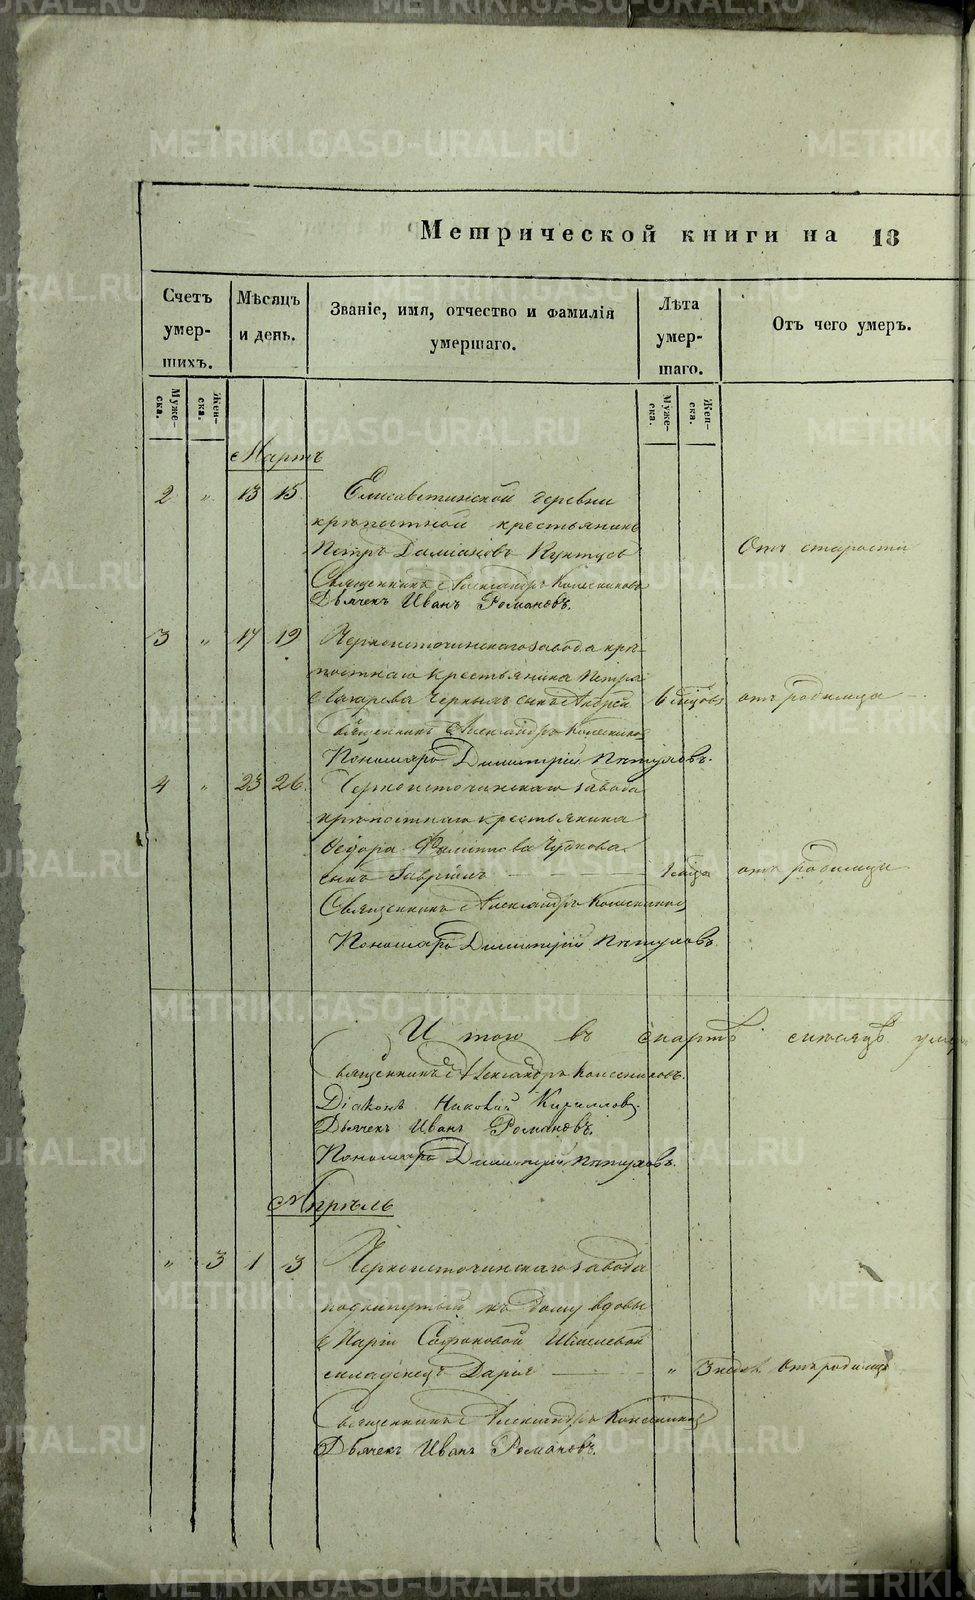 METRIKI.GASO-URAL.RU
Метрической книги на 18
Счетъ умершихъ.
Мѣсяцъ и день.
Званіе, имя, отчество и фамилія умершаго.
Лѣта умершаго.
Отъ чего умеръ.
Муже-ска.
Жен-ска.
Муже-ска.
Жен-ска.
Мартъ
2 „ 13 15 Елисаветинской деревни
крѣпостной крестьянинъ
Петръ Даміановъ Отъ старости
Священникъ Александръ Колесниковъ
Дьячекъ Иванъ Романовъ.
3 „ 17 19 Черноисточинскаго завода крѣ-
постнаго крестьянина Петра
Черныхъ сынъ Андрей 6 мѣсцовъ отъ родимца
Священникъ Александръ Колесниковъ
Пономарь Димитрій Пѣтуховъ.
4 „ 23 26 Черноисточинскаго завода
крѣпостнаго крестьянина
Ѳедора Филиппова
сынъ Гавріилъ 1 мѣсца отъ родимца
Священникъ Александръ Колесниковъ
Пономарь Димитрій Пѣтуховъ.
Итого въ Мартѣ мѣсяцѣ
Священникъ Александръ Колесниковъ.
Діаконъ Николай Кирилловъ.
Дьячекъ Иванъ Романовъ.
Пономарь Димитрій Пѣтуховъ.
Апрѣль
„ 3 1 3 Черноисточинскаго завода
подкинутый къ дому вдовы
Маріи Сафоновой Шмелевой
младенецъ Дарія „ 3 нед. Отъ родимца
Священникъ Александръ Колесниковъ
Дьячекъ Иванъ Романовъ.